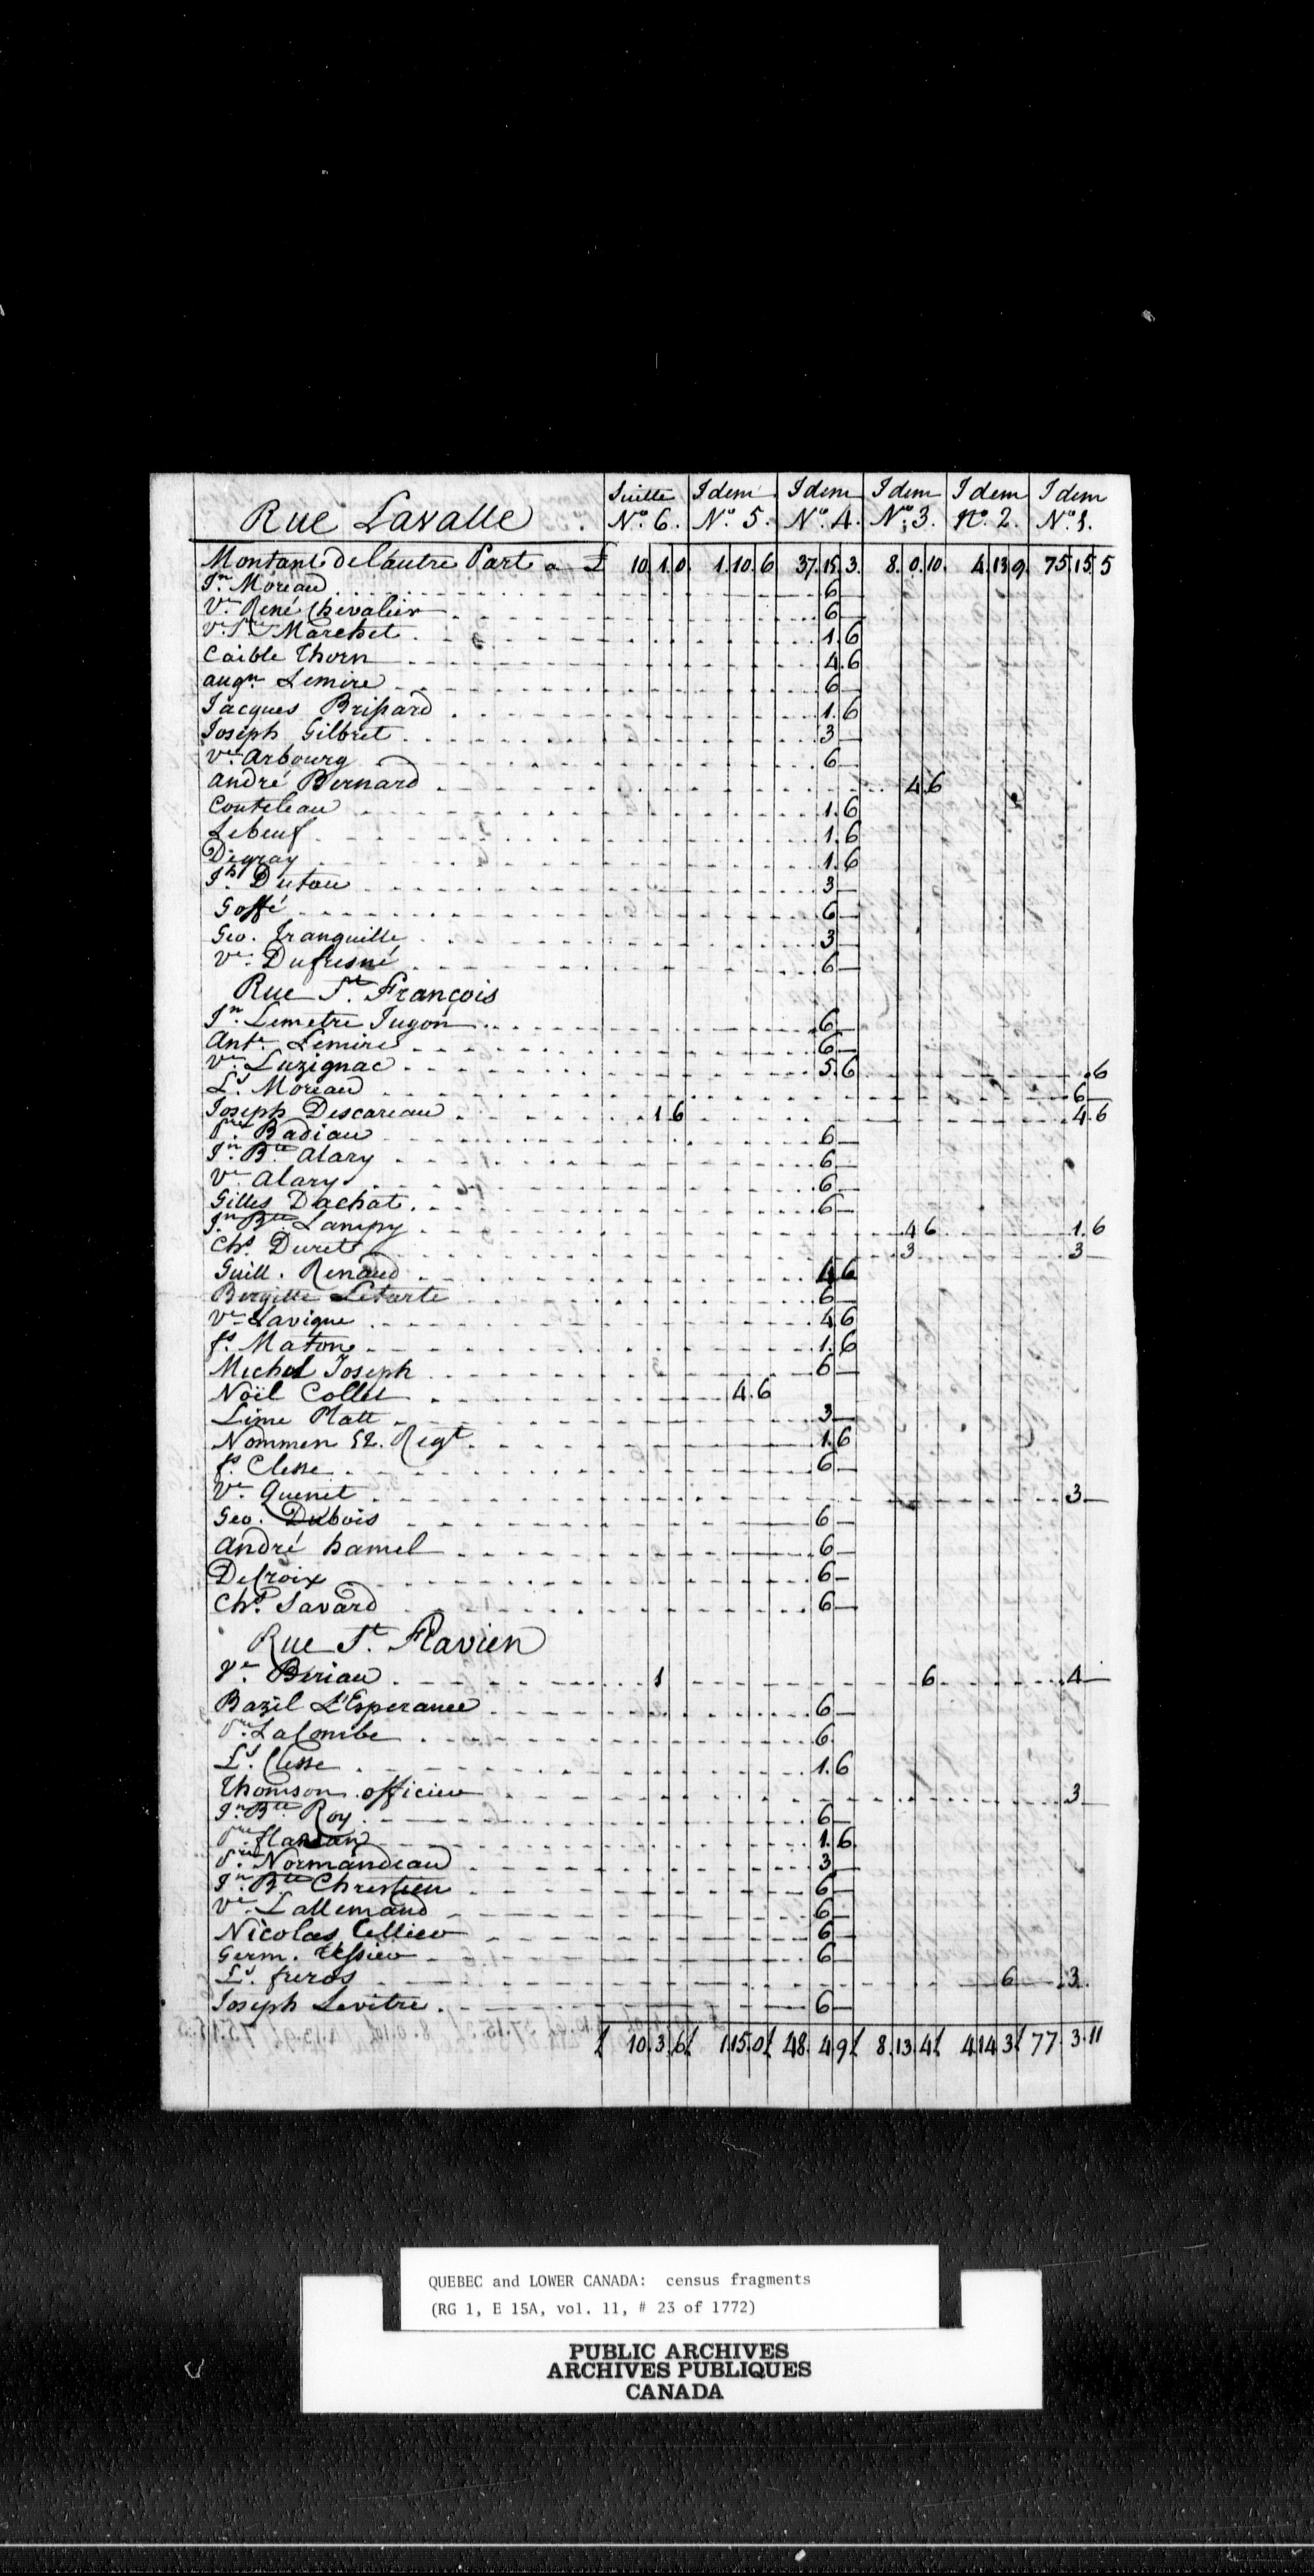 Suitte Idem Idem Idem Idem Idem
Rue Lavalle Nº 6. Nº 5. Nº 4. Nº 3. Nº 2. Nº 1.
Montant de l'autre Part a £ 10. 1. 0. 1. 10. 6 37. 15. 3. 8. 0. 10. 4. 13. 9. 75. 15. 5
Jn. Moreau 6 —
Ve. René Chevalier 6 —
Ve. Pre. Marchet 1. 6
Caible Thorn 4. 6
augn. Lemire 6 —
Jacques Brissard 1. 6
Joseph Gilbret 3 —
Ve. Arbourg 6 —
André Bernard 4. 6
Couteleau 1. 6
Lebeuf 1. 6
Degray 1. 6
Jh. Dutau 3 —
Goffé 6 —
Geo. Tranquille 3 —
Ve. Dufresne 6 —
Rue St. François
Jn. Lemetre Jugon 6 —
Ante. Lemire 6 —
Ve. Luzignac 5. 6 . 6
Ls. Moreau 6 —
Joseph Descareau 1 6 4. 6
Pre. Badiau 6 —
Jn. Bte. Alary 6 —
Ve. Alary 6 —
Gilles Dachat 6 —
Jn. Bte. Lampy 4 6 1. 6
Chs. Duret 3 3 —
Guill. Renaud 4 6
Bergitte Letarte 6 —
Ve. Lavigne 4. 6
fs. Maton 1. 6
Michel Joseph 6 —
Noël Collet 4. 6
Lime Platt 3 —
Nommen 52. Regt. 1. 6
fs. Clesse 6 —
Ve. Quenet 3 —
Geo. Dubois 6 —
André hamel 6 —
Delroix 6 —
Chs. Savard 6 —
Rue St. Flavien
Ve. Beriau 1 6 4 —
Bazil L'Esperance 6 —
Pre. LaCombe 6
Ls. Clesse 1. 6
Thomson officier 3 —
Jn. Bte. Roy 6 —
Pre. flandan 1. 6
Pre. Normandeau 3 —
Jn. Bte. Chrestien 6 —
Ve. Lallemand 6 —
Nicolas Cellier 6 —
Germ. Tessier 6 —
Ls. freros 6 — 3
Joseph Levitre 6 —
£ 10. 3. 6 £ 1. 15. 0 £ 48. 4. 9 £ 8. 13. 4 £ 4. 14. 3 £ 77. 3. 11
QUEBEC and LOWER CANADA: census fragments
(RG 1, E 15A, vol. 11, # 23 of 1772)
PUBLIC ARCHIVES
ARCHIVES PUBLIQUES
CANADA